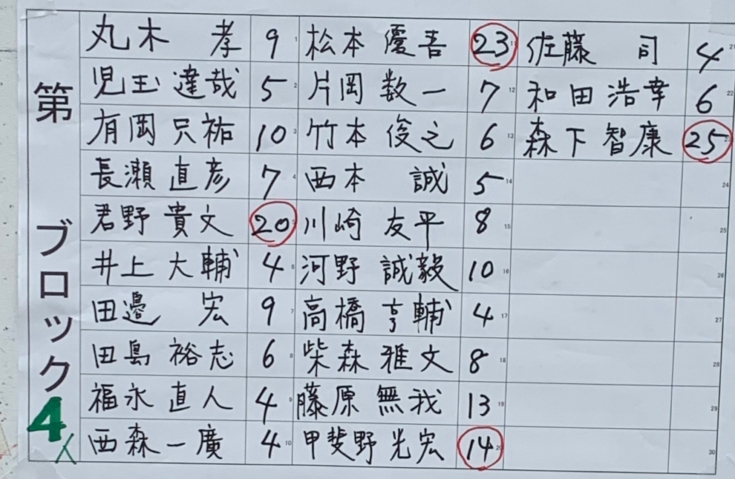 第 ブロック
4人
丸木 孝 9
児玉達哉 5
有岡只祐 10
長瀬直彦 7
君野貴文 20
井上大輔 4
田邉 宏 9
田島裕志 6
福永直人 4
西森一廣 4
松本優吾 23
片岡数一 7
竹本俊之 6
西本 誠 5
川崎友平 8
河野誠毅 10
高橋亨輔 4
柴森雅文 8
藤原無我 13
甲斐野光宏 14
佐藤 司 4
和田浩幸 6
森下智康 25